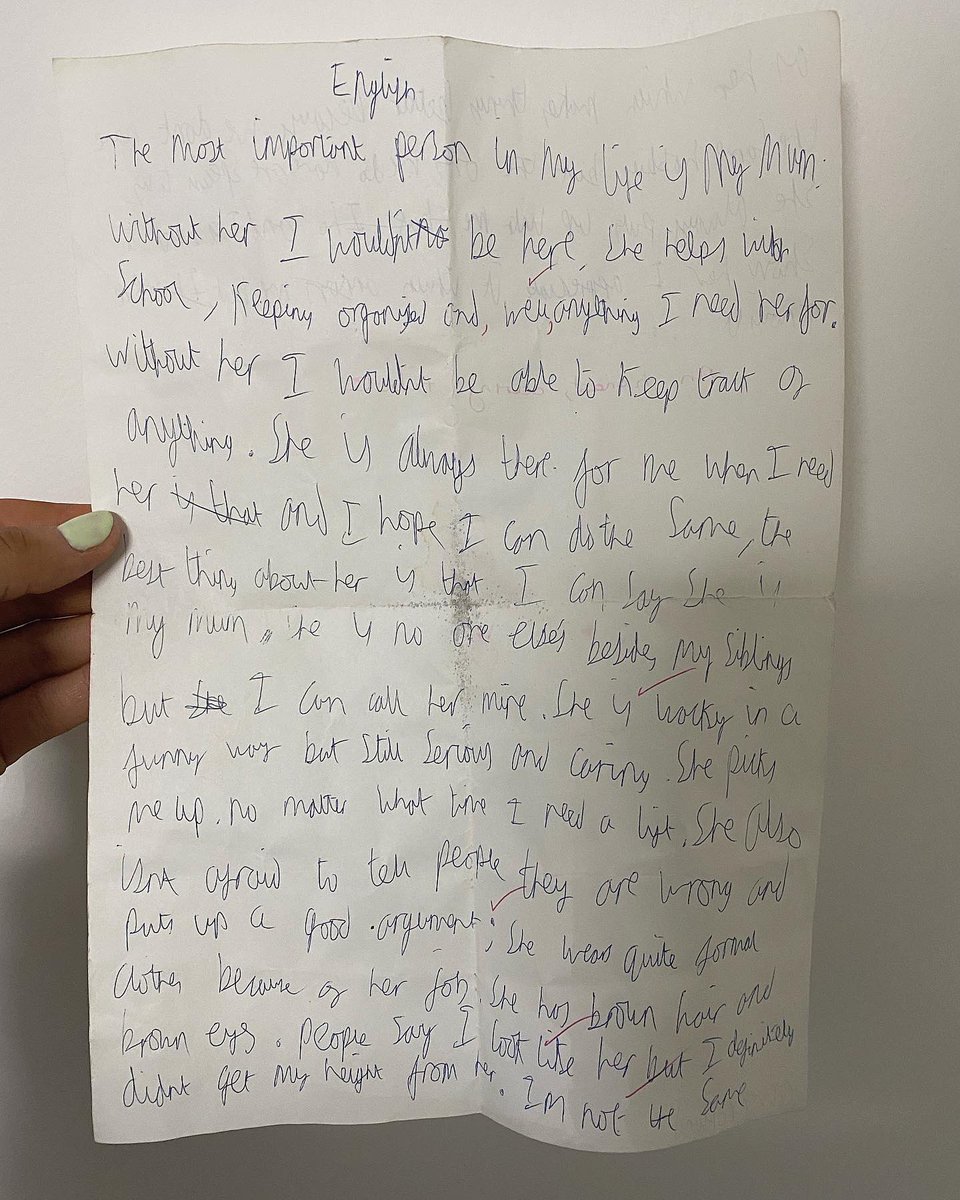 English
The most important person in my life is my mum.
without her I wouldnt be here, she helps with
School, keeping organised and, well, anything I need her for.
without her I wouldnt be able to keep track of
anything. She is always there for me when I need
her is that and I hope I can do the same, the
best thing about her is that I can say she is
my mum, she is no one else's besides my siblings
but She I can call her mine. She is wacky in a
funny way but still serious and caring. She picks
me up no matter what time I need a lift. She also
isnt afraid to tell people they are wrong and
puts up a good argument; She wears quite formal
clothes because of her job. She has brown hair and
brown eyes. people say I look like her but I definitely
didnt get my height from her. Im not the same